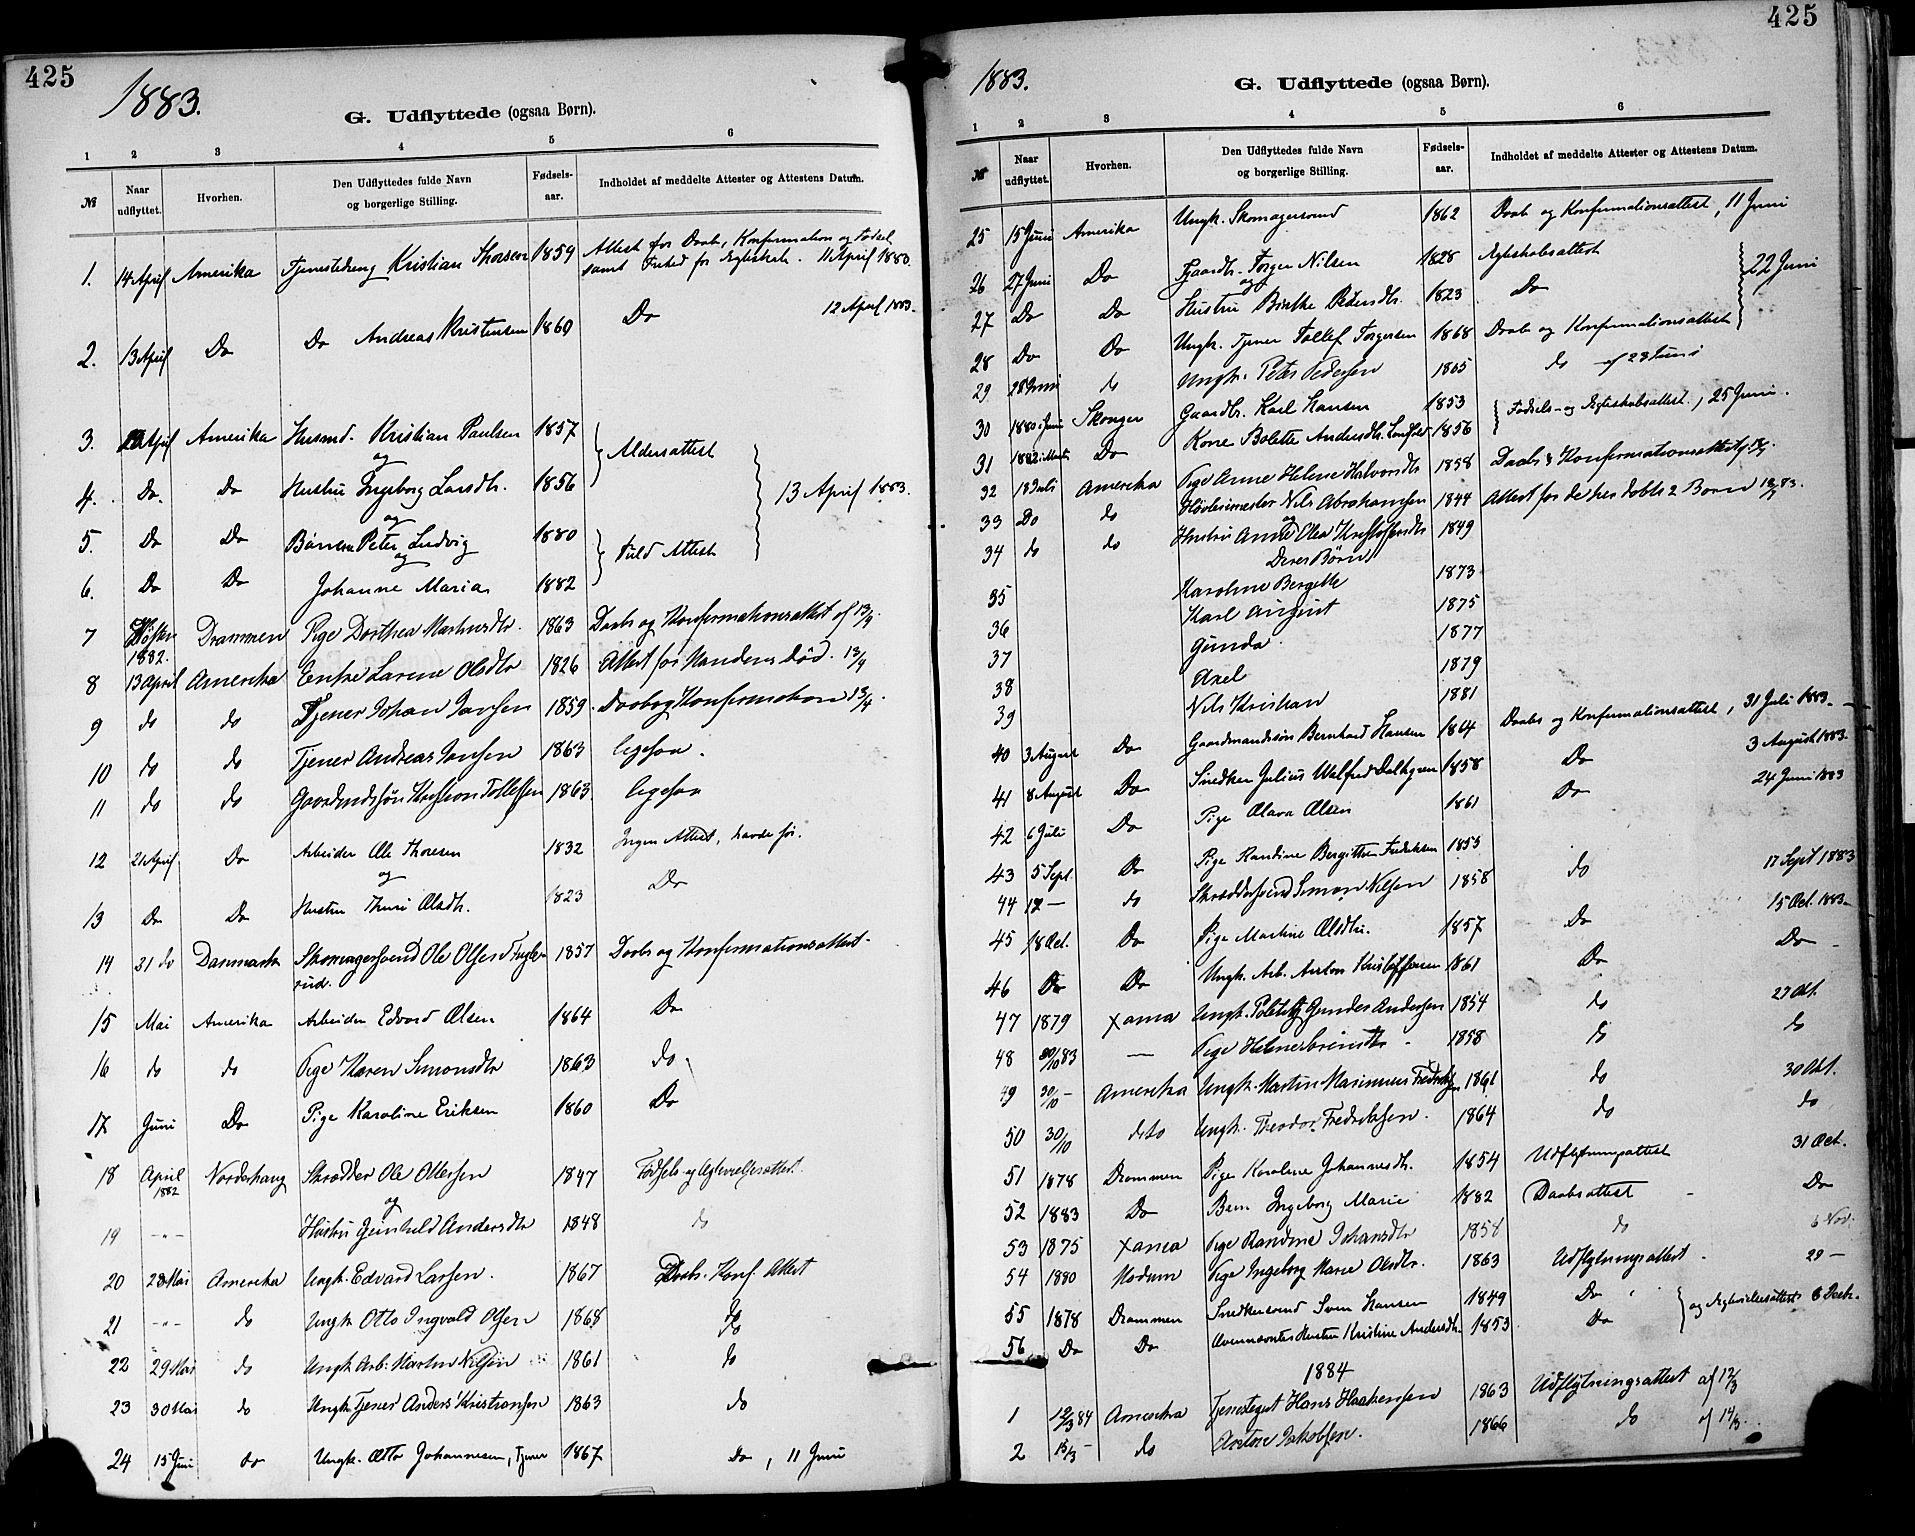 425
1883.
G. Udflyttede (ogsaa Børn).
1 2 3 4 5 6
№ Naar udflyttet. Hvorhen. Den Udflyttedes fulde Navn og borgerlige Stilling. Fødsels-aar. Indholdet af meddelte Attester og Attestens Datum.
1. 14 April Amerika Tjenestedreng Kristian Thorsen 1859 Attest for Daab, Konfirmation og Fødsel
samt Frihed for Ægteskab. 11 April 1880.
2. 13 April Do Do Andreas Kristensen 1860 Do 12 April 1883.
3. April Amerika Husmd. Kristian Paulsen 1857 Aldersattest
og
4. Do. Do Hustru Ingeborg Larsdtr. 1856 13 April 1883.
og
5. Do Do Børnene Peter Ludvig 1880 Fuld Attest
og
6. Do Do Johanne Maria 1882
7 Høsten 1882. Drammen Pige Dorthea Martinsdtr. 1863 Daabs og Konfirmationsattest af 13/4.
8 13 April Amerika Enke Larine Olsdtr 1826 Attest for Mandens død. 13/4
9 do do Tjener Johan Jansen 1859 Daab og Konfirmation 13/4.
10 do do Tjener Andreas Jansen 1863 ligesaa.
11 do do Gaardmdssøn Kristian Tollefsen 1863 ligesaa
12 21 April Do Arbeider Ole Thoresen 1832 Ingen Attest, havde før.
og
13 Do Do Hustru Thuri Olsdtr. 1823 Do
14 31 do Danmark Skomagersvend Ole Olsen Fugle-
rud. 1857 Daabs og Konfirmationsattest.
15 Mai Amerika Arbeider Edvard Olsen 1864 Do
16 do do Pige Karen Simonsdtr 1863 do.
17 Juni Do Pige Karoline Eriksen 1860 Do
18 April 1882 Norderhaug Skrædder Ole Ottersen 1847 Fødsels og Ægtevielsesattest.
og
19 -"- Hustru Gunhild Andersdtr 1848 do
20 28 Mai Amerika Ungk. Edvard Larsen. 1867 Daabs. Konf. Attest
21 -"- do Ungk. Otto Ingvald Olsen 1868 do
22 29 Mai do Ungk Arb. Martin Nilsen 1861 do
23 30 Mai do Ungk Tjener Anders Kristiansen 1863 do
24 15 Juni do Ungk. Otto Johannesen, Tjener 1867 Do, 11 Juni
425
1883.
G. Udflyttede (ogsaa Børn).
1 2 3 4 5 6
№ Naar udflyttet. Hvorhen. Den Udflyttedes fulde Navn og borgerlige Stilling. Fødsels-aar. Indholdet af meddelte Attester og Attestens Datum.
25 15 Juni Amerika Ungk. Skomagersvend 1862 Daab og Konfirmationsattest, 11 Juni
26 27 Juni Do Gaardbr. Torger Nilsen 1828 Ægteskabsattest
og
22 Juni
27 Do Do Hustru Birthe Pedersdtr. 1823 Do
28 Do Do Ungk. Tjener Tollef Torgersen 1868 Daab og Konfirmationsattest
29 28 Juni do Ungk. Peter Pedersen 1865 do af 28 Juni
30 1880. Juni Skoger Gaardbr. Karl Hansen 1853 Fødsels- og Ægteskabsattest, 25 Juni.
31 1882. Do Kone Bolette Andersdtr. 1856
32 18 Juli Amerika Pige Anne Helene Halvorsdtr 1858 Daabs & Konfirmationsattest
33 Do do Høvlerimester Nils Abrahamsen 1844 Attest for de her døbte 2 Børn 18/7 83.
og
34 do do Hustru Anne Olea Kristoffersdtr 1849
Deres Børn
35 Karoline Bergitte 1873
36 Karl August 1875
37 Gunda 1877
38 Axel 1879
39 Nils Kristian 1881
40 3 August Do Gaardmandssøn Bernhard Hansen 1864 Daabs og Konfirmationsattest, 31 Juli 1883.
41 8 August Do Snedker Julius Walfrid Dahlgren 1858 Do 3 August 1883.
42 6 Juli Do Pige Olava Olsen 1861 Do 24 Juni 1883
43 5 Sept. Do Pige Randine Bergitte Fredriksen 1853
44 12 — do Skræddersvend Simon Nilsen 1858 do 17 Sept 1883
45 18 Oct. Do Pige Martine Olsdtr. 1857 Do 15 Oct. 1883
46 Do Do Ungk. Arb. Anton Kristoffersen 1861 Do Do
47 1879 Xania Ungk. Gunder Andersen 1854 do 23 Okt.
48 30/10 83 — Pige Helene 1858 do do
49 30/10 — Amerika Ungk. Martin Marinius Fredriksen 1861 do 30 Okt.
50 30/10 dito Ungk. Theodor Fredriksen. 1864 do do
51 1878 Drammen Pige Karoline Johannesdtr. 1854 Udflytningsattest 31 Oct.
52 1883 Do Barn Ingeborg Marie 1882 Daabsattest Do
53 1875 Xania Pige Randine Johansdtr 1858 do 6 Nov.
54 1880 Modum Pige Ingeborg Marie Olsdtr. 1863 Udflytningsattest. 29 —
55 1878 Drammen Snedkersvend Sven Hansen 1849 Do og Ægtevielsesattest 6 Decbr.
56 Do Do Hustru Kristine Andersdtr. 1853 Do
1884
1 12/3 84 Amerika Tjenestegut Hans Haakensen 1863 Udflytningsattest af 12/3
2 15/3 — do Anton Jakobsen. 1866 do af 14/3.